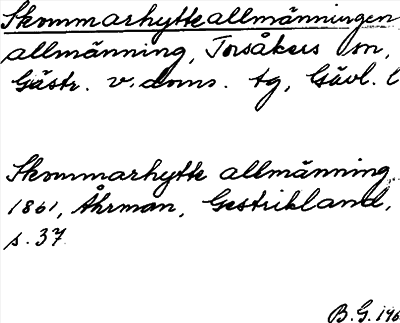 Skommarhytteallmänningen
allmänning, Torsåkers sn,
Gästr. v. doms. tg, Gävl. l
Skommarhytte allmänning
1861, Åhrman, Gestrikland,
s. 37
B.G. 196